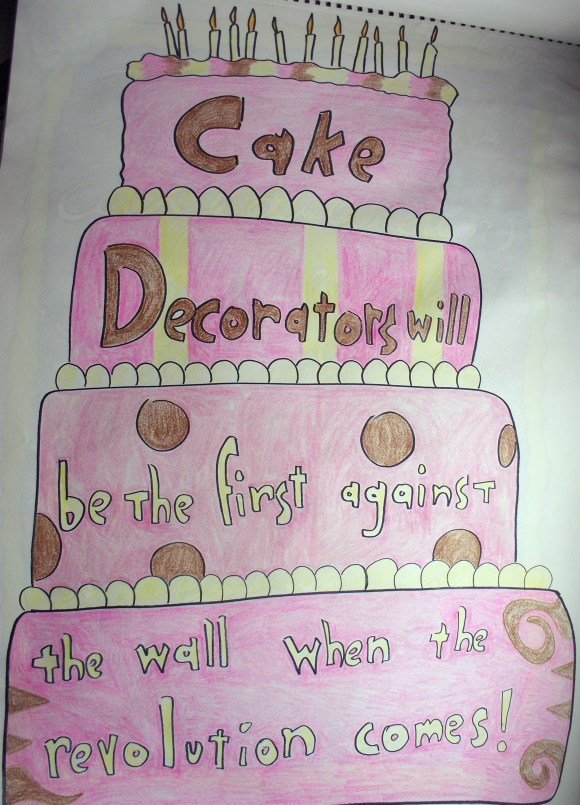 Cake
Decorators will
be the first against
the wall when the
revolution comes!